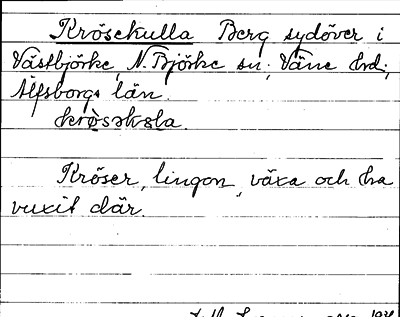 Krösekulla Berg sydöver i
Västbjörke, N. Björke sn; Väne hd;
Älfsborgs län.
krösəkɵla.

Kröser, lingon, växa och ha
vuxit där.